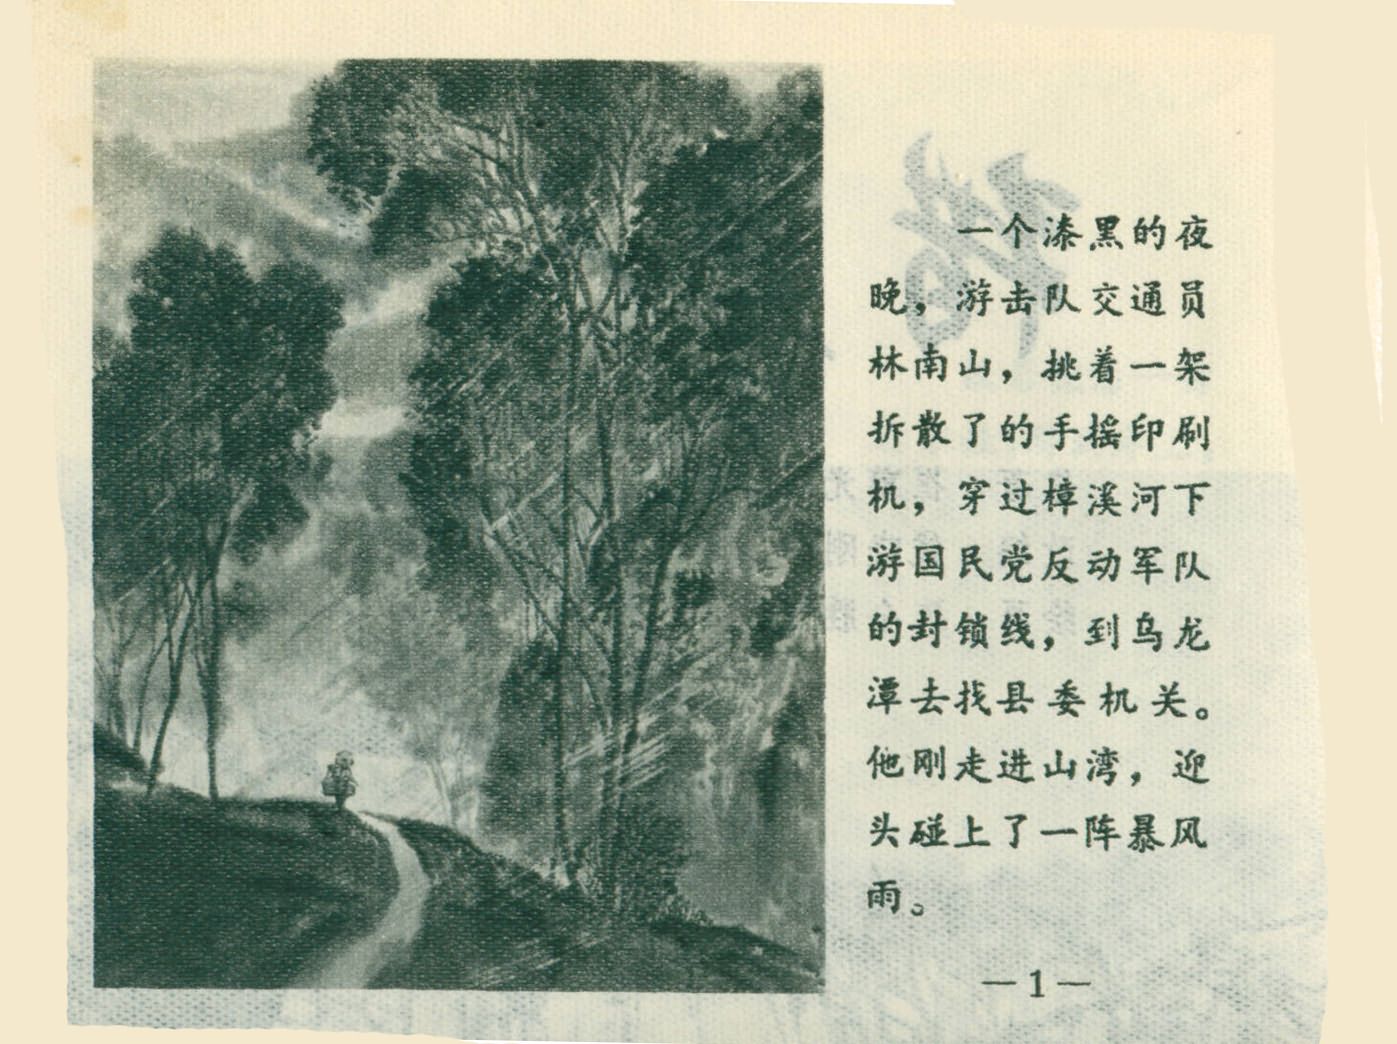 一个漆黑的夜
晚，游击队交通员
林南山，挑着一架
拆散了的手摇印刷
机，穿过樟溪河下
游国民党反动军队
的封锁线，到乌龙
潭去找县委机关。
他刚走进山湾，迎
头碰上了一阵暴风
雨。
—1—